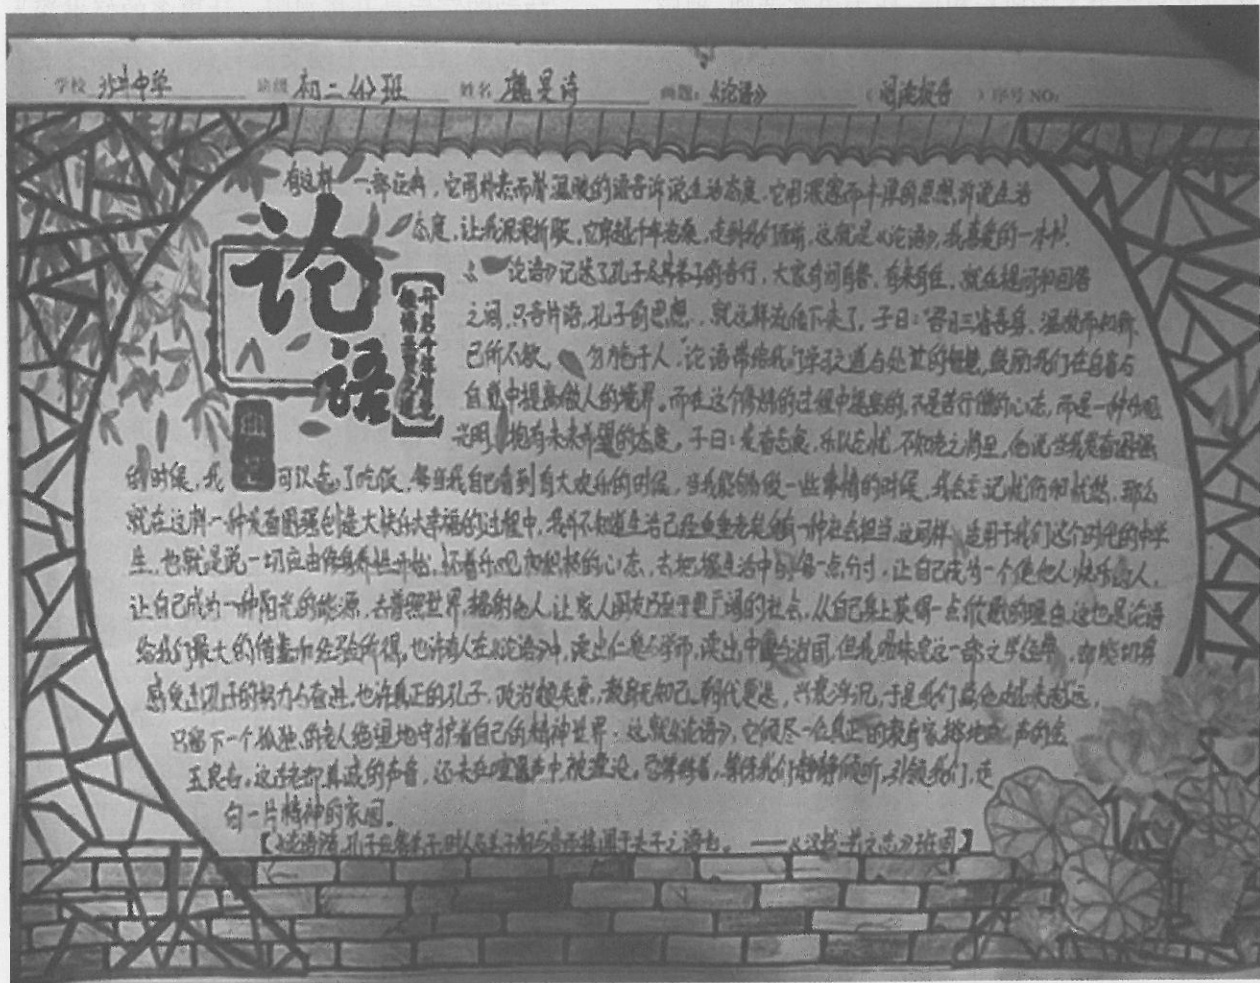 学校 沙斗中学 班级 初二（4）班 姓名 魏旻诗 画题：《论语》（阅读报告）序号 NO：
有这样一部经典，它用朴素而温暖的语言诉说生活态度，它用深邃而丰厚的思想诉说生活
态度，让我深深折服。它穿越千年沧桑，走到我们面前，这就是《论语》，我喜爱的一本书。
论
语
《论语》记述了孔子及其弟子的言行，大家有问有答，有来有往，就在提问和回答
之间，只言片语，孔子的思想，就这样流传下来了。子曰：“吾日三省吾身，温故而知新
己所不欲，勿施于人”论语带给我们学习之道与处世的智慧，鼓励我们在自省与
自觉中提高做人的境界。而在这个修炼的过程中 的，不是苦行僧的心态，而是一种
抱有未来希望的态度。子曰：发奋忘食，乐以忘忧，不知老之将至。他说当我发奋图强
的时候，我可以忘了吃饭，每当我自己看到有大欢乐的时候，当我能够做一些事情的时候，我会忘记忧伤和忧愁。那么
就在这样一种发奋图强创造大快乐大幸福的过程中，我并不知道生活已经垂垂老矣 有一种社会担当，这同样适用于我们这个时代的中学
生。也就是说一切应由修身养性开始，怀着乐观和积极的心态，去把握生活中的每一点分寸，让自己成为一个使他人快乐的人，
让自己成为一种阳光的能源，去普照世界，辐射他人，让家人朋友乃至于更广阔的社会，从自己身上获得一点欣慰的理由。这也是论语
给我们最大的借鉴和经验所得。也许有人在《论语》中，读出仁 学而，读出中庸与治国，但我 这一部文学经典，都能切身
感受到孔子的努力与奋进。也许真正的孔子，政治想失意，教育无知己。朝代更迭，兴衰浮沉，于是我们与他越走越远，
只留下一个孤独的老人绝望地守护着自己的精神世界。这就《论语》，它倾尽一位真正的教育家 声的金
玉良言。这 真诚的声音，还未在喧嚣声中被湮没。 等待我们静静倾听，引领我们走
向一片精神的家园。
【《论语》者，孔子应答弟子、时人及弟子相与言而接闻于夫子之语也。——《汉书·艺文志》班固】